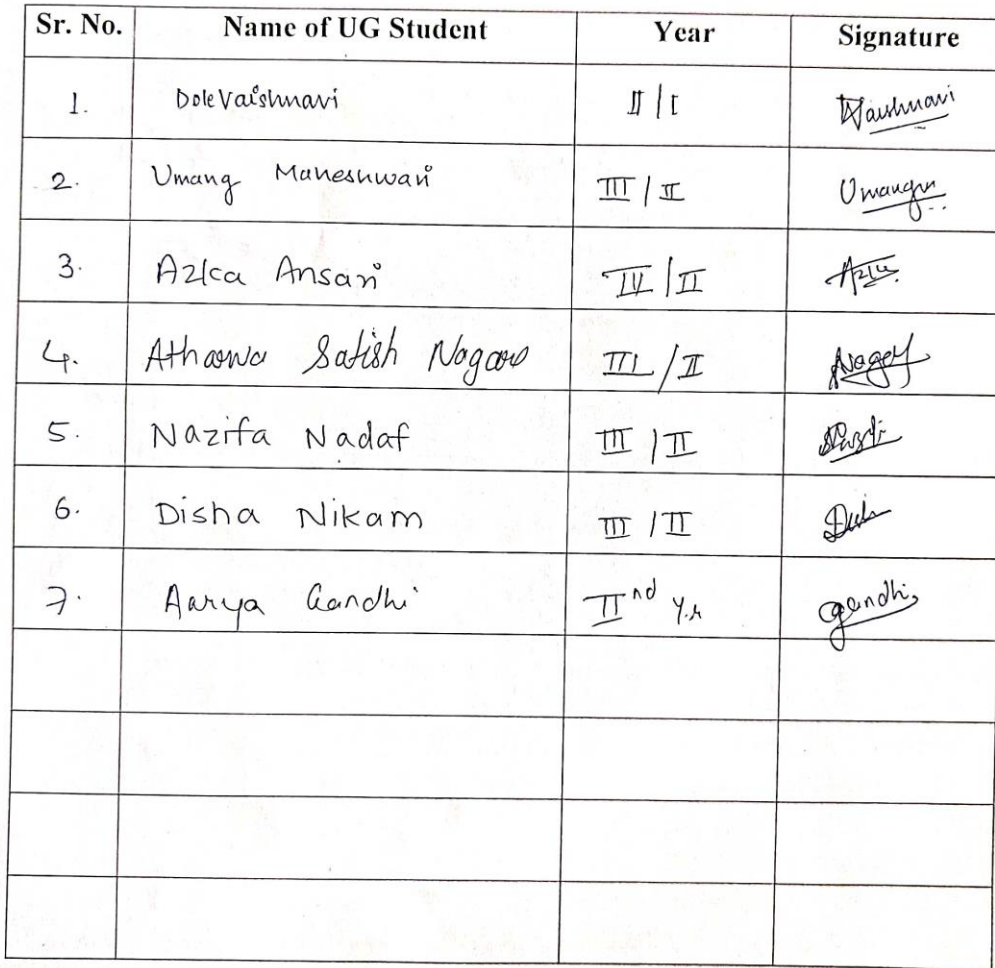 Sr. No. Name of UG Student Year Signature
1. Dole Vaishnavi II / I Vaishnavi
2. Umang Maheshwari III / II Umangm
3. Azka Ansari IV / II Azka
4. Satish III / II
5. Nazifa Nadaf III / II
6. Disha Nikam III / II
7. Aarya Gandhi II nd Y.r gandhi